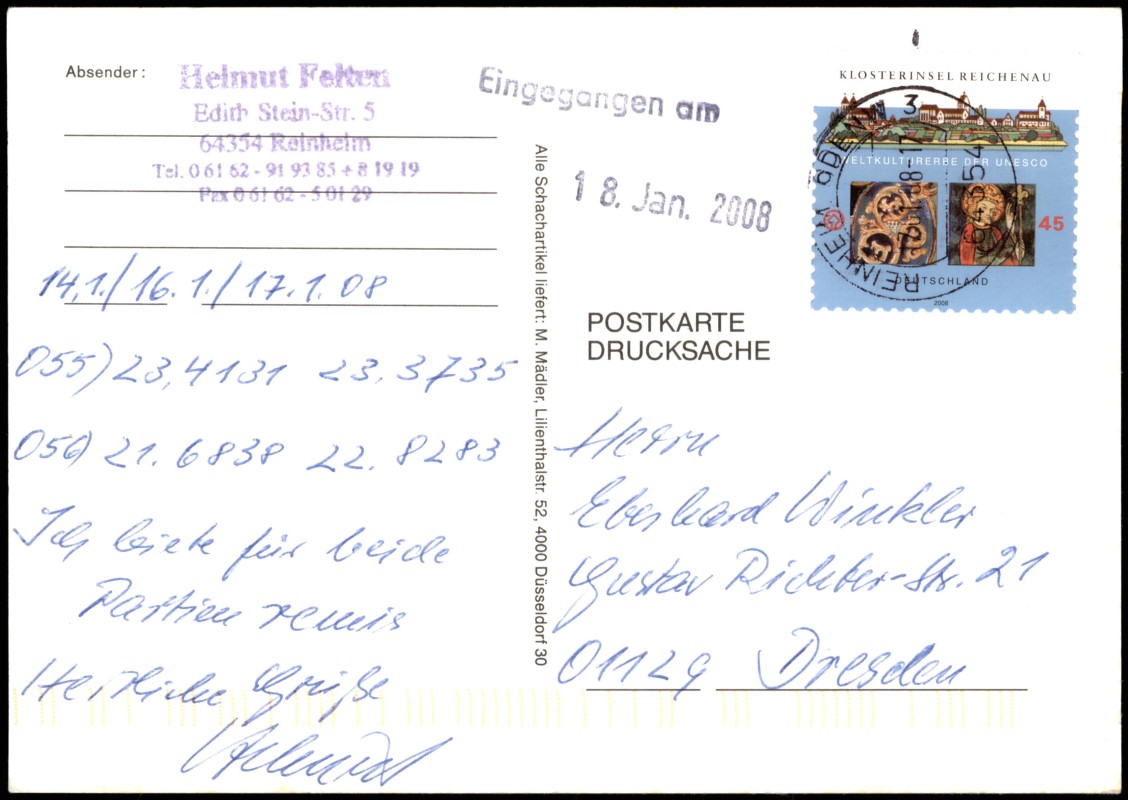 Absender:
Helmut Felten
Edith Stein-Str. 5
64354 Reinheim
Tel. 0 61 62 - 91 93 85 + 8 19 19
Fax 0 61 62 - 5 01 29
14.1./16.1./17.1.08
055) 23.4131 23.3735
056) 21.6838 22.8283
Ich biete für beide
Partien remis
Herzliche Grüße
Helmut
Alle Schachartikel liefert: M. Mädler, Lilienthalstr. 52, 4000 Düsseldorf 30
Eingegangen am
18. Jan. 2008
KLOSTERINSEL REICHENAU
WELTKULTURERBE DER UNESCO
45
DEUTSCHLAND
2008
REINHEIM ODENW 3
64354
POSTKARTE
DRUCKSACHE
Herrn
Eberhard Winkler
Gustav Richter-Str. 21
01129 Dresden